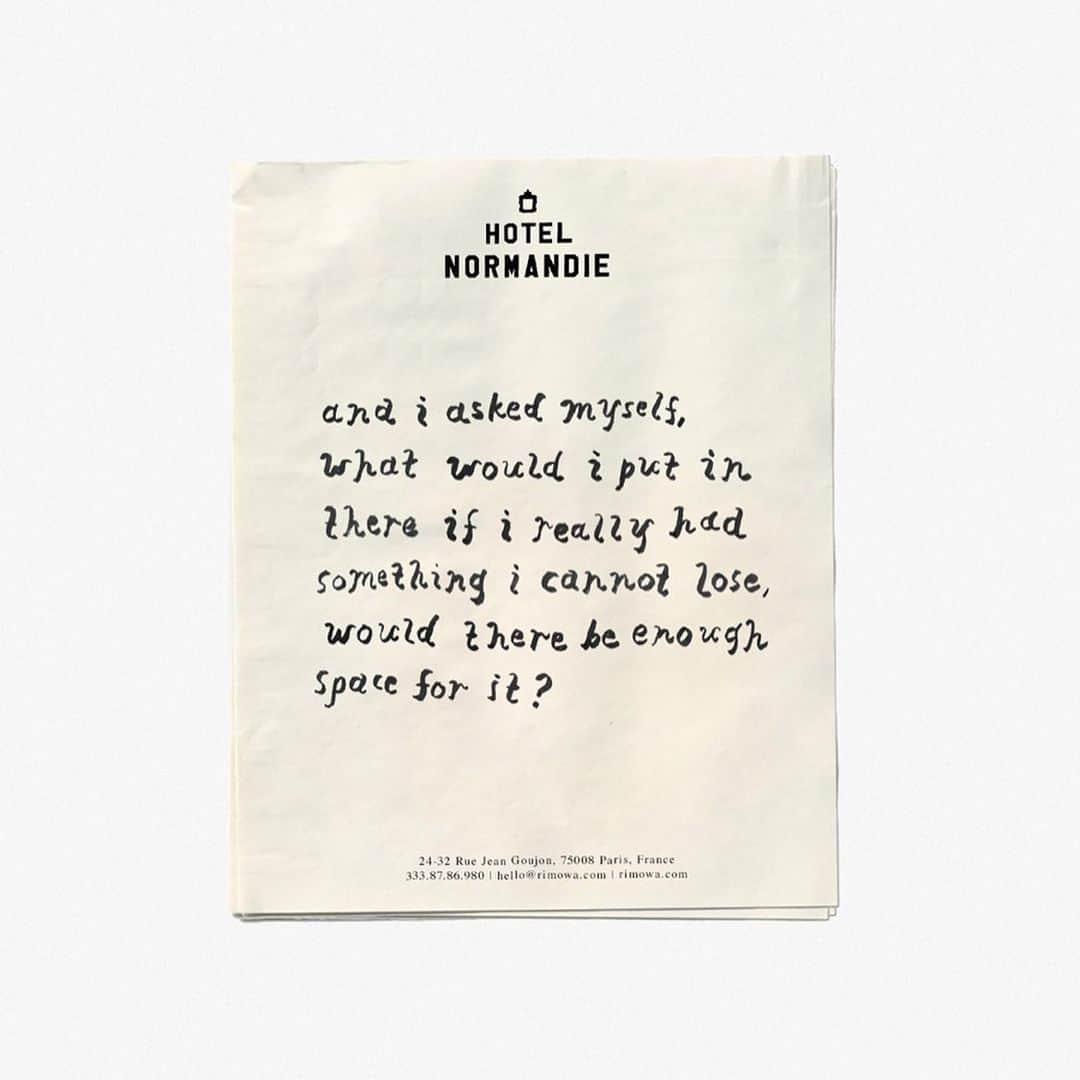 HOTEL
NORMANDIE
and i asked myself,
what would i put in
there if i really had
something i cannot lose,
would there be enough
space for it?
24-32 Rue Jean Goujon, 75008 Paris, France
333.87.86.980 | hello@rimowa.com | rimowa.com